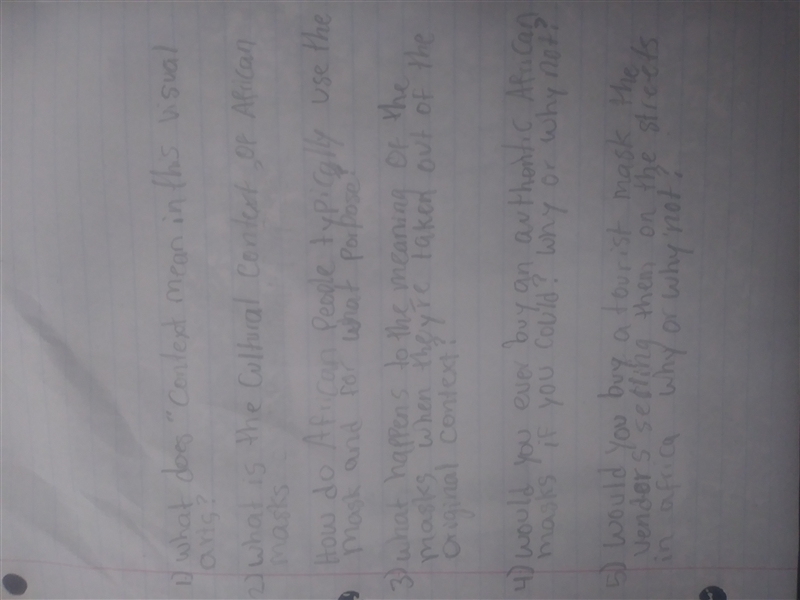 1) What does "Context mean in this visual
arts?
2) What is the Cultural Context, of African
masks
How do African people typically use the
mask and for what purpose?
3) What happens to the meaning of the
masks when they're taked out of the
original context?
4) Would you ever buy an authentic African
masks if you could? why or why not?
5) Would you buy a tourist mask the
vender's selling them on the streets
in africa why or why not,